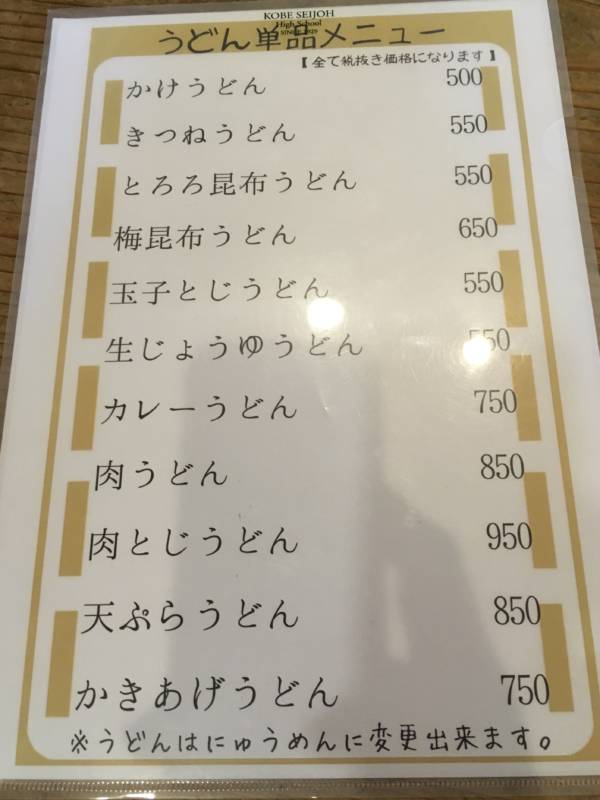 KOBE SEIJOH
High School
SINCE 1929
うどん単品メニュー
【全て税抜き価格になります】
かけうどん 500
きつねうどん 550
とろろ昆布うどん 550
梅昆布うどん 650
玉子とじうどん 550
生じょうゆうどん 550
カレーうどん 750
肉うどん 850
肉とじうどん 950
天ぷらうどん 850
かきあげうどん 750
※うどんはにゅうめんに変更出来ます。